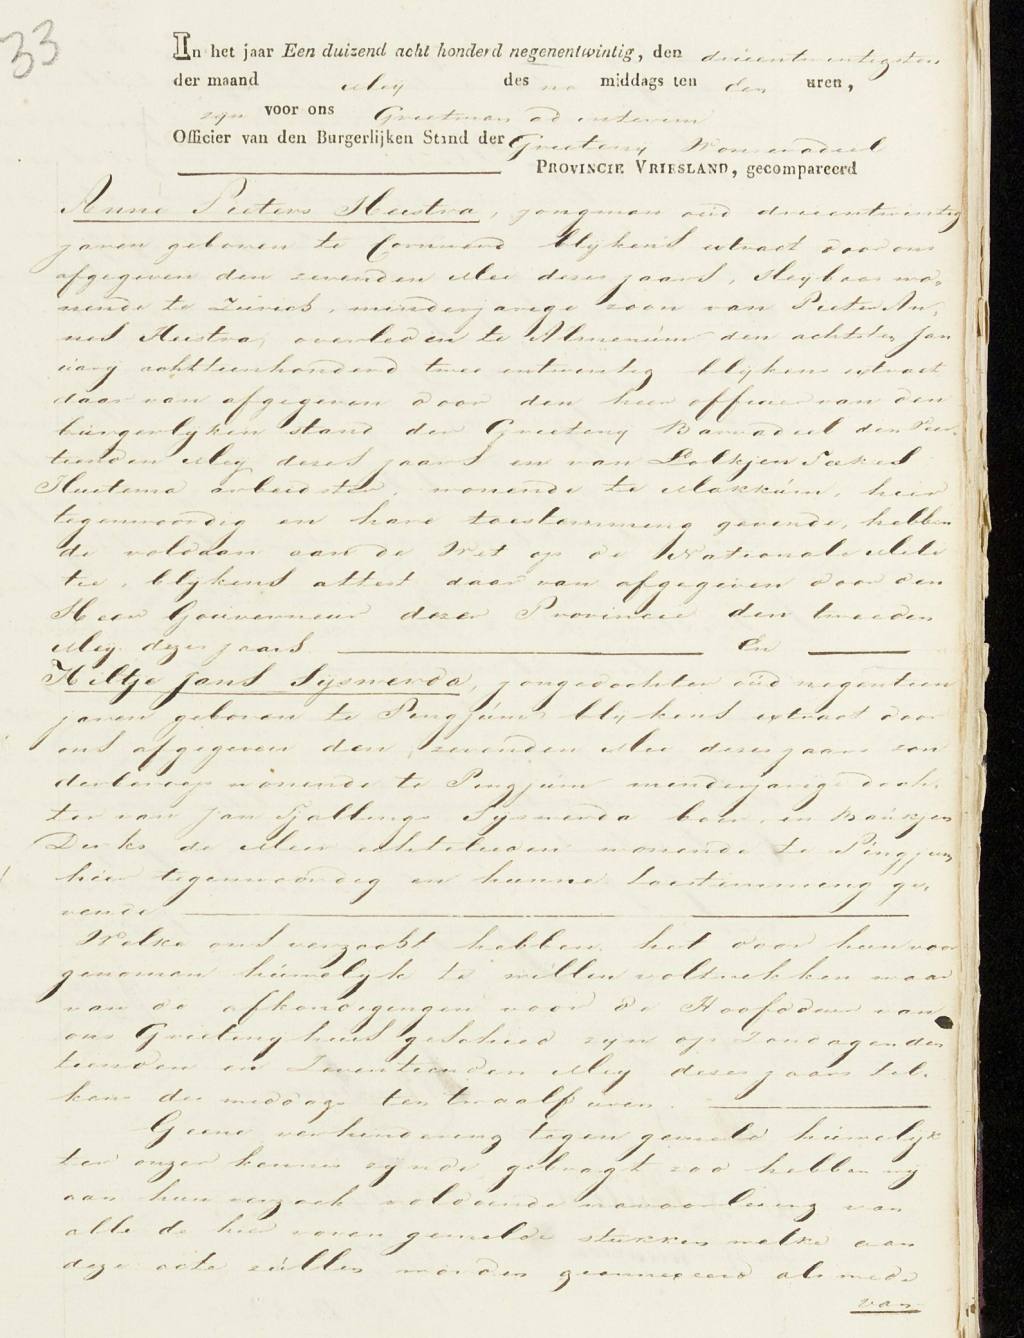 33
In het jaar Een duizend acht honderd negenentwintig, den drieentwintigsten
der maand Meij des na middags ten uren,
zijn voor ons Grietman ad interim
Officier van den Burgerlijken Stand der Grieteny Wonseradeel
PROVINCIE VRIESLAND, gecompareerd
Anne Pieters Hiestra, jongman oud drieentwintig
jaren geboren te Cornwerd blijkens extract door ons
afgegeven den zevenden Mei dezes jaars, wo„
nende te Zurich, minderjarige zoon van Pieter An„
nes Hiestra, overleden te Almenum den achtsten Jan
uarij achttienhonderd twee entwintig blijkens extract
daar van afgegeven door den heer officier van den
burgerlijken stand der Grieteny Barradeel den
tienden Meij dezes jaars en van Lolkjen
arbeidster, wonende te Makkum, hier
tegenwoordig en hare toestemming gevende, hebben
de voldaan aan de Wet op de Nationale Mili
tie, blijkens attest daar van afgegeven door den
Heer Gouverneur dezer Provincie den tweeden
Meij dezes jaars En
Hiltje Jans Sijswerda, jongedochter oud negentien
jaren geboren te Pingjum blijkens extract door
ons afgegeven den zevenden Mei dezes jaars zon
derberoep wonende te Pingjum minderjarige doch„
ter van Jan Tjallings Sijswerda boer, en Baukjen
Derks de Meer echtelieden wonende te Pingjum
hier tegenwoordig en hunne toestemming ge„
vende
Welke ons verzocht hebben het door hun voor
genomen huwelijk te willen voltrekken waar
van de afkondigingen voor de Hoofddeur van
ons Grietenyhuis geschied zijn op Zondag den
tienden en Zeventienden Meij dezes jaars tel„
kens des middags ten twaalf uren.
Geene verhindering tegen gemeld huwelijk
ter onzer kennis zijnde gebragt zoo hebben wij
aan hun verzoek voldoende na voorlezing van
alle de hier voren gemelde stukken welke aan
deze acte zullen worden geannexeerd als mede
van